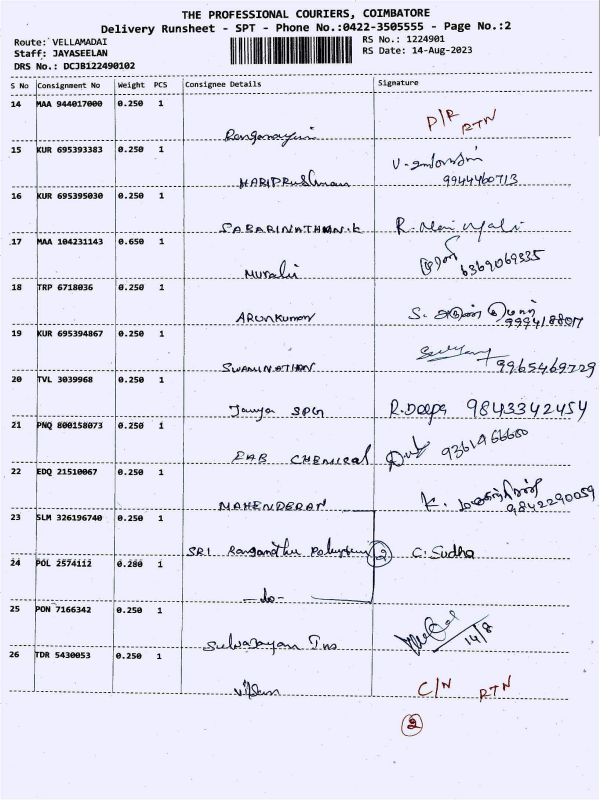 THE PROFESSIONAL COURIERS, COIMBATORE
Delivery Runsheet - SPT - Phone No.:0422-3505555 - Page No.:2
Route: VELLAMADAI
RS No.: 1224901
Staff: JAYASEELAN
RS Date: 14-Aug-2023
DRS No.: DCJB122490102
S No Consignment No Weight PCS Consignee Details Signature
14 MAA 944017000 0.250 1
P/R RTN
15 KUR 695393383 0.250 1
9944460713
16 KUR 695395030 0.250 1
SABARINATHAN.K
17 MAA 104231143 0.650 1
Murali 6369069335
18 TRP 6718036 0.250 1
ARUNKUMAR S. அருண்
19 KUR 695394867 0.250 1
SWAMINATHAN 9965469729
20 TVL 3039968 0.250 1
SPG R.Deepa 9843342454
21 PNQ 800158073 0.250 1
CHEMICAL
22 EDQ 21510067 0.250 1
MAHENDERAN K. 9842290059
23 SLM 326196740 0.250 1
SRI 2 C. Sudha
24 POL 2574112 0.280 1
-do-
25 PON 7166342 0.250 1
14/8
26 TDR 5430053 0.250 1
C/N RTN
2